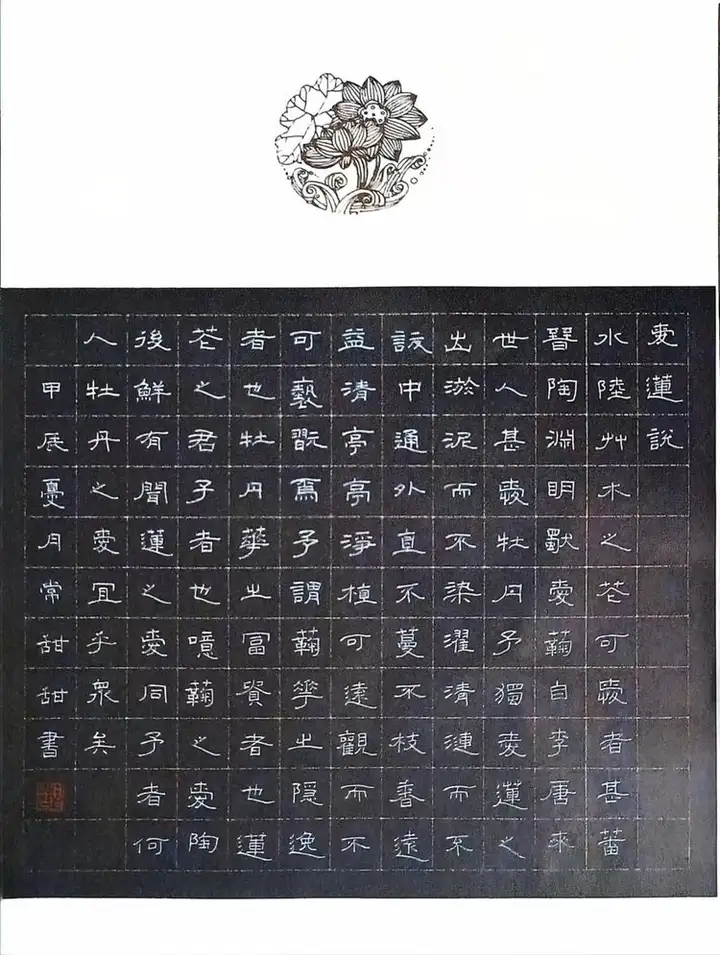 愛蓮說
水陸艸木之花可愛者甚蕃
晉陶淵明獨愛蘜自李唐來
世人甚愛牡丹予獨愛蓮之
出淤泥而不染濯清漣而不
中通外直不蔓不枝香遠
益清亭亭淨植可遠觀而不
可褻翫焉予謂蘜華之隱逸
者也牡丹華之富貴者也蓮
花之君子者也噫蘜之愛陶
後鮮有聞蓮之愛同予者何
人牡丹之愛宜乎眾矣
甲辰夏月常甜甜書